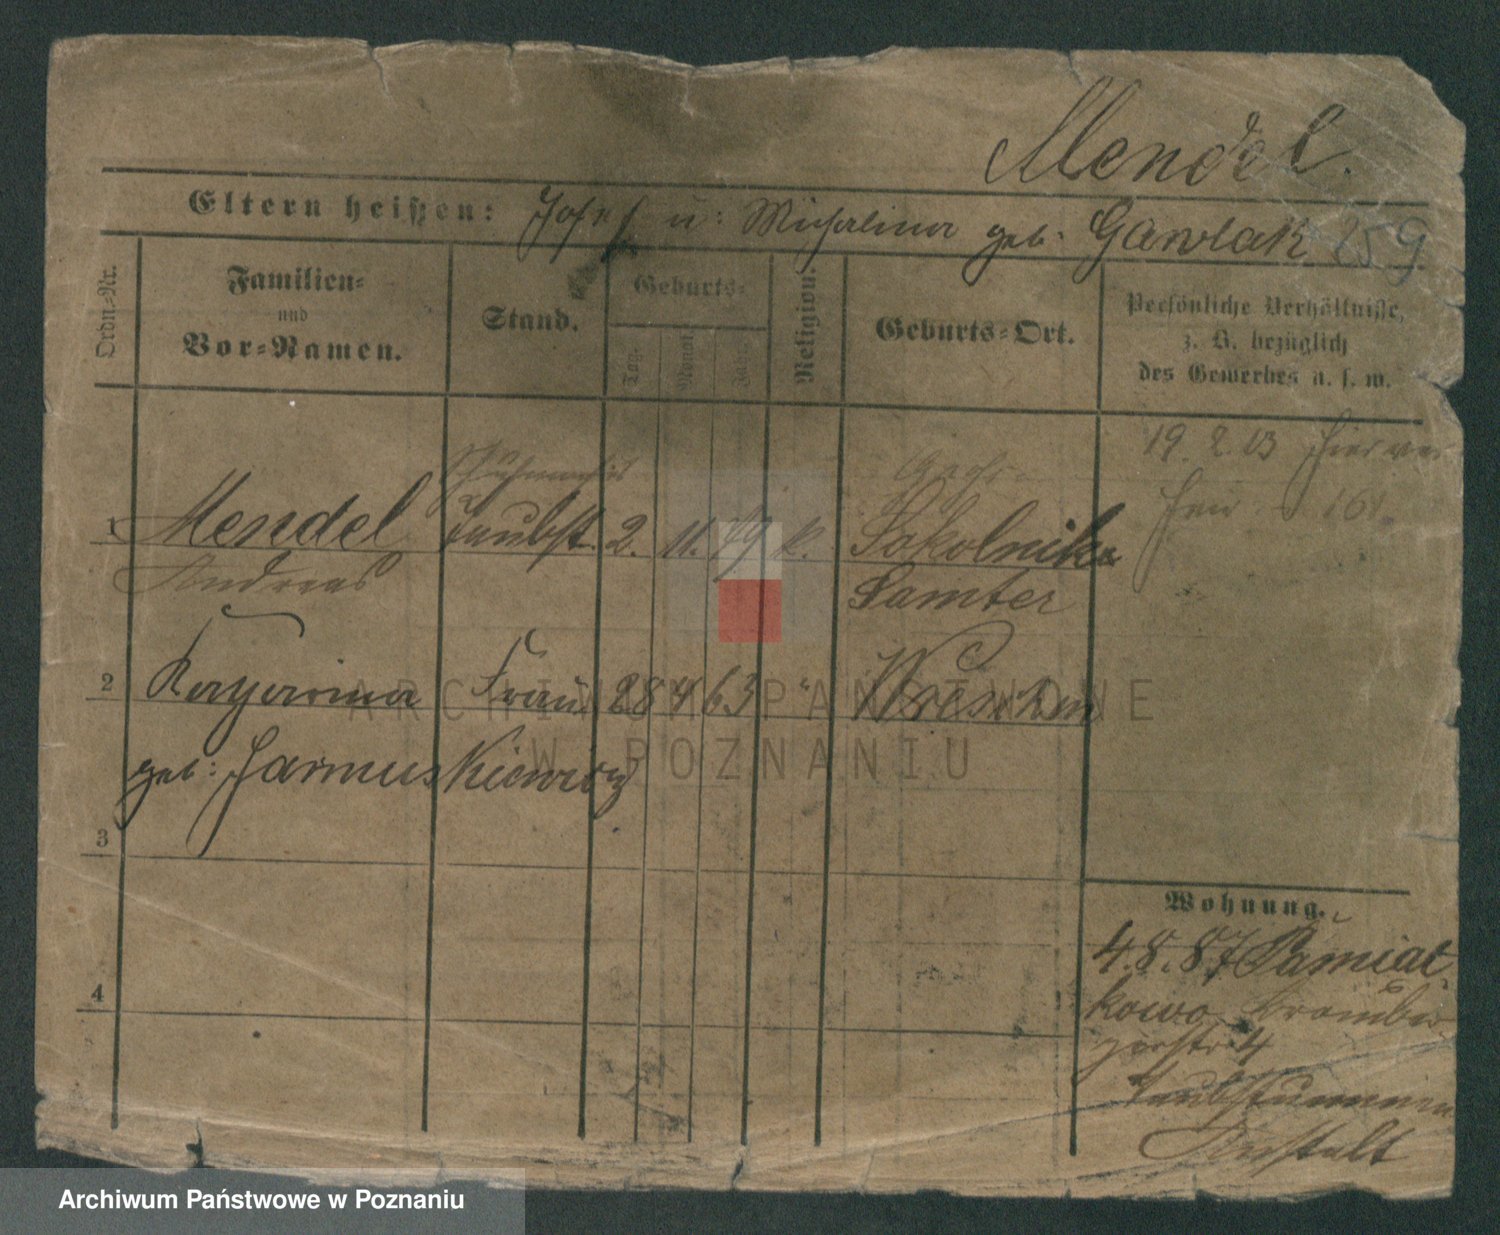 Mendel.
Eltern heißen: Josef u: Michalina geb. Gawlak 259
Ordn.-Nr.
Familien-
und
Vor-Namen.
Stand.
Geburts-
Tag.
Monat
Jahr.
Religion.
Geburts-Ort.
Persönliche Verhältnisse,
z. B. bezüglich
des Gewerbes u. s. w.
19. 2. 13
161.
1 Mendel Taubst. 2. 11. 79 k. Sokolnik
Andreas Samter
2 Katharina Frau 28 4 63 " Wreschen
geb: Jarmuskiewicz
3
4
Wohnung.
4. 8. 87 Pamiat-
kowo Bromber-
gerstr. 4
Taubstummen
Anstalt
ARCHIWUM PAŃSTWOWE
W POZNANIU
Archiwum Państwowe w Poznaniu